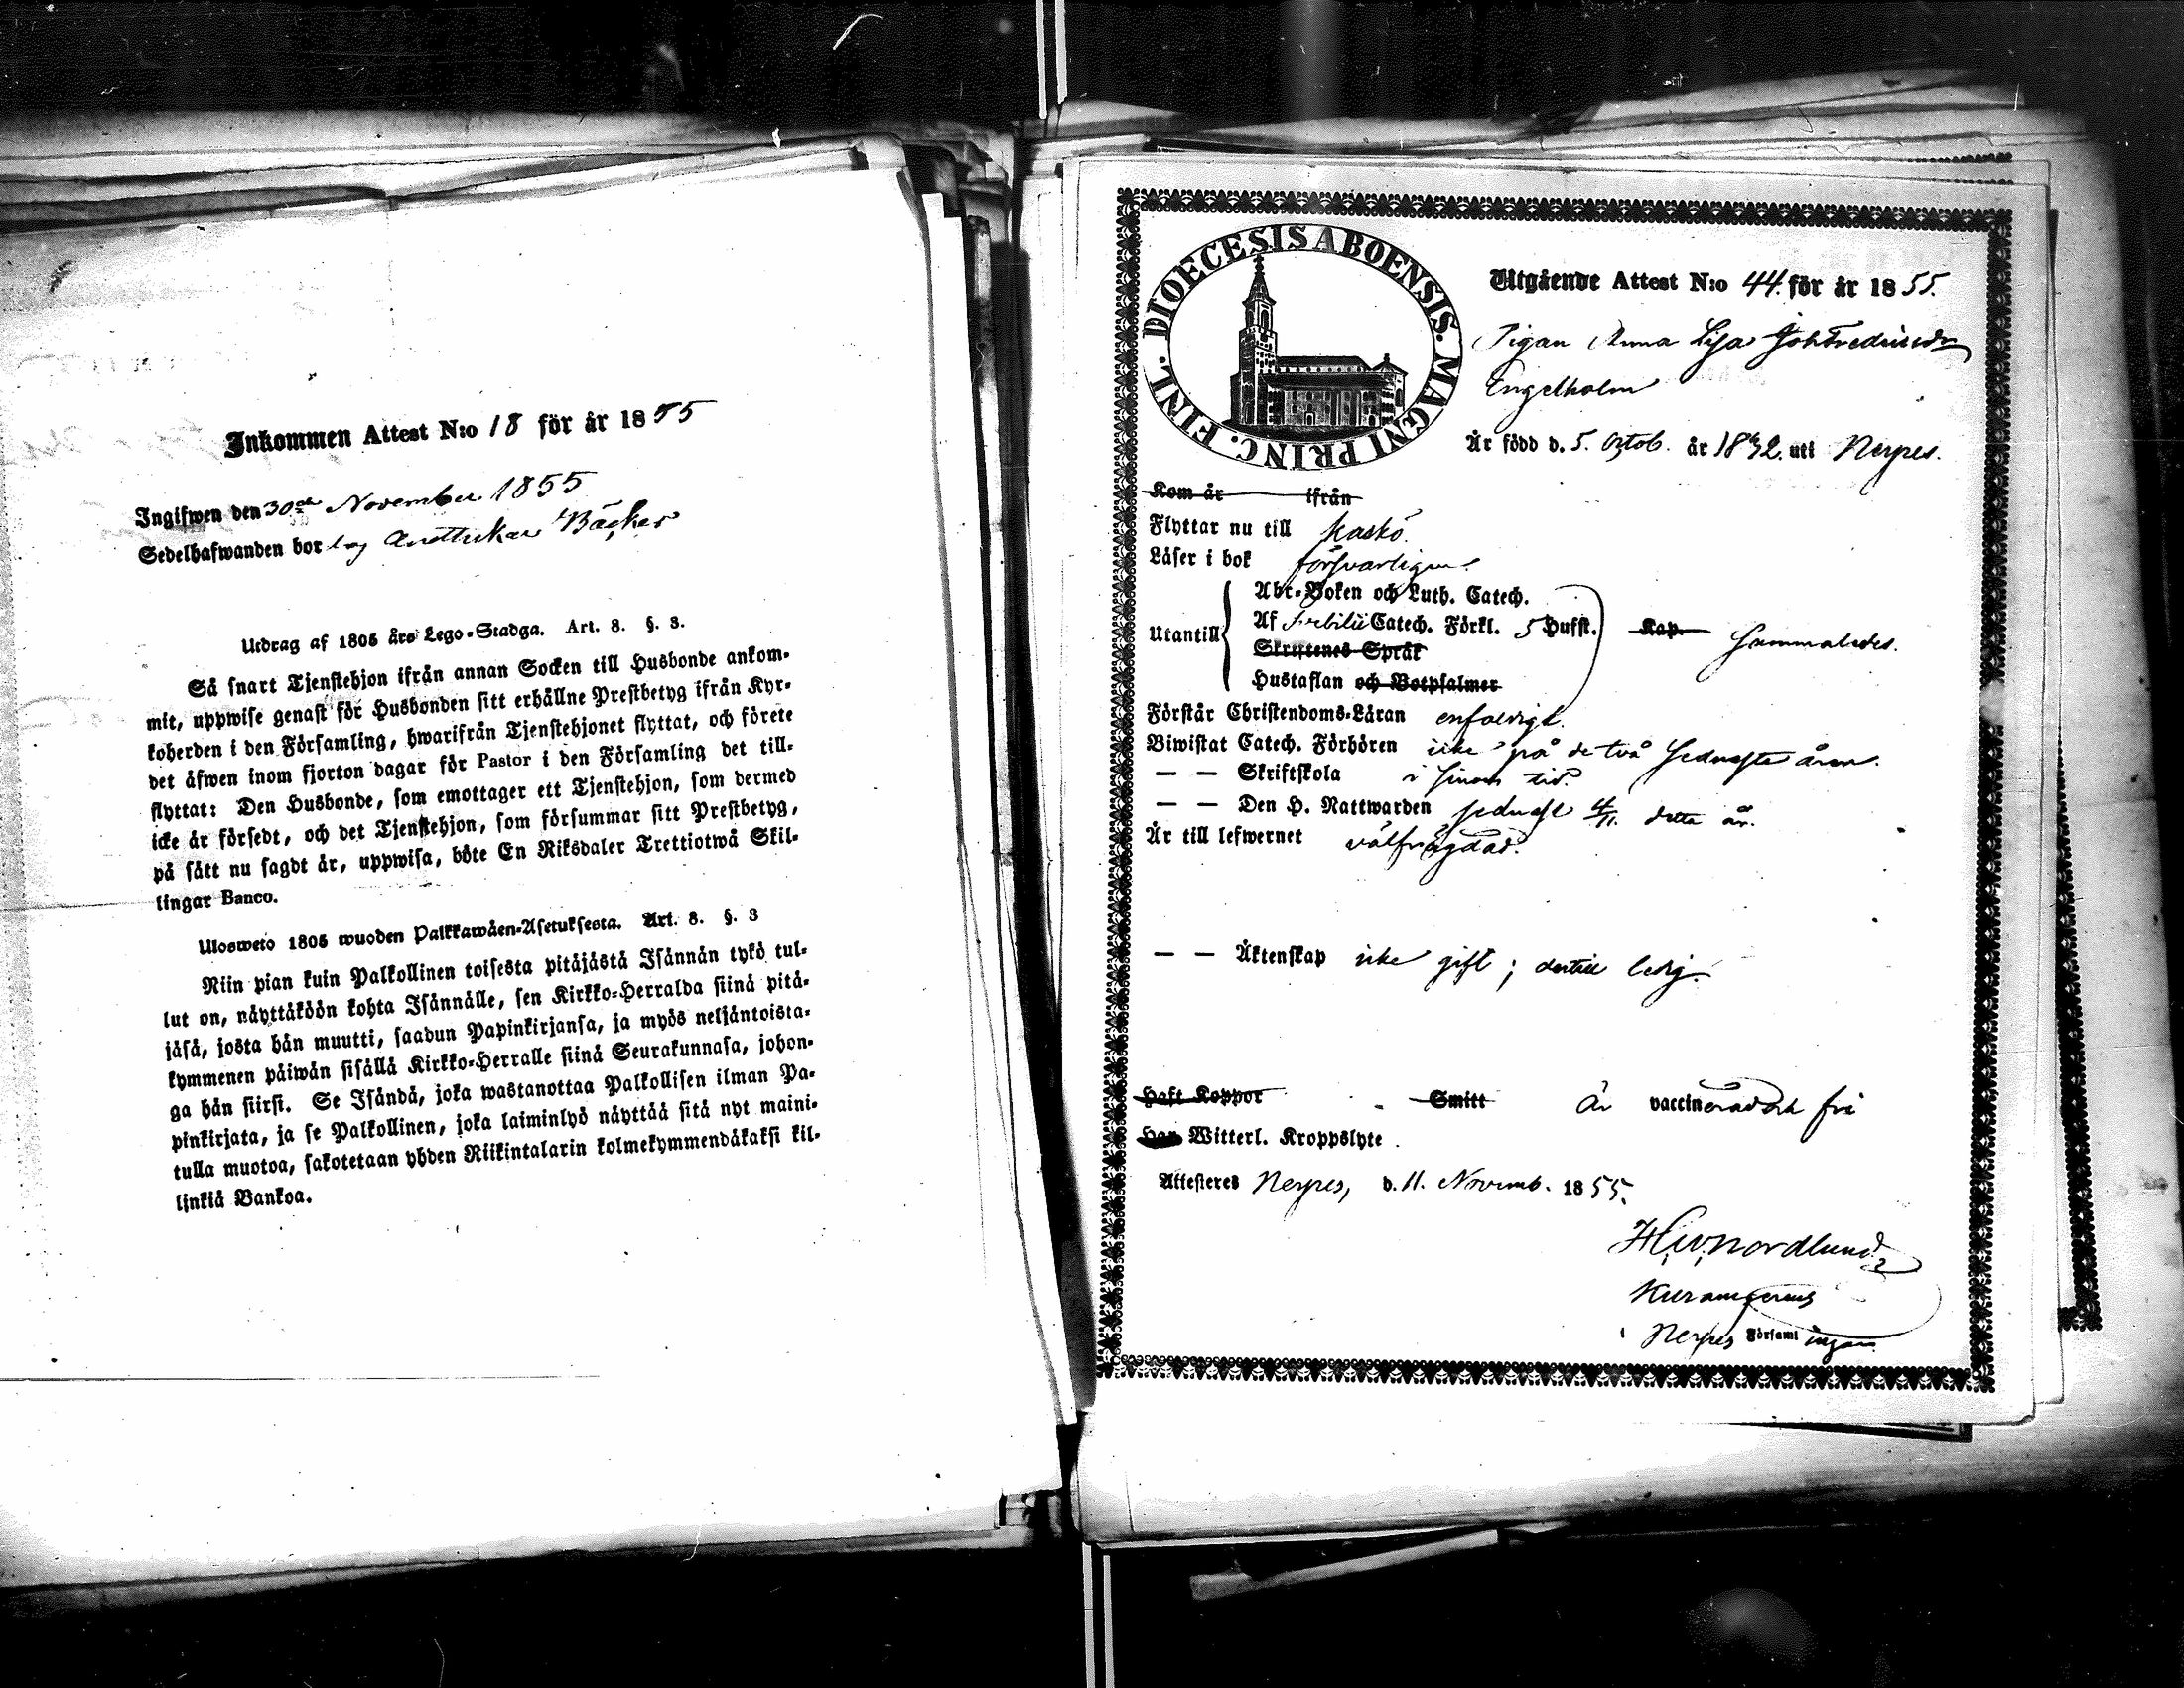 Inkommen Attest N:o 18 för år 1855
Ingifwen den 30de November 1855
Sedelhafwanden bor hos Bäcker
Utdrag af 1805 års Lego-Stadga. Art. 8. §. 3.
Så snart Tjenstehjon ifrån annan Socken till Husbonde ankom-
mit, uppwise genast för Husbonden sitt erhållne Prestbetyg ifrån Kyr-
koherden i den Församling, hwarifrån Tjenstehjonet flyttat, och förete
det äfwen inom fjorton dagar för Pastor i den Församling det till-
flyttat: Den Husbonde, som emottager ett Tjenstehjon, som dermed
icke är försedt, och det Tjenstehjon, som försummar sitt Prestbetyg,
på sätt nu sagdt är, uppwisa, böte En Riksdaler Trettiotwå Skil-
lingar Banco.
Ulosweto 1805 wuoden Palkkawäen-Asetuksesta. Art. 8. §. 3
Niin pian kuin Palkollinen toisesta pitäjästä Isännän tykö tul-
lut on, näyttäköön kohta Isännälle, sen Kirkko-Herralda siinä pitä-
jäsä, josta hän muutti, saadun Papinkirjansa, ja myös neljäntoista-
kymmenen päiwän sisällä Kirkko-Herralle siinä Seurakunnasa, johon-
ga hän siirsi. Se Isändä, joka wastanottaa Palkollisen ilman Pa-
pinkirjata, ja se Palkollinen, joka laiminlyö näyttää sitä nyt maini-
tulla muotoa, sakotetaan yhden Riikintalarin kolmekymmendäkaksi kil-
linkiä Bankoa.
DIOECESIS ABOENSIS. MAGNI PRINC. FINL.
Utgående Attest N:o 44. för år 1855.
Pigan Anna Lisa
Engelholm
Är född d. 5. Octob. år 1832. uti Nerpes.
Kom år ifrån
Flyttar nu till Kaskö.
Läser i bok försvarligen.
Abc-Boken och Luth. Catech.
Utantill Af Svebilii Catech. Förkl. 5 Hufst. Kap. Sammaledes.
Skriftenes Språk
Hustaflan och Botpsalmer
Förstår Christendoms-Läran enfaldigt.
Biwistat Catech. Förhören icke på de två sednaste åren.
— — Skriftskola i sinom tid.
— — Den H. Nattwarden sednast 4/11. detta år.
Är till lefwernet välfrägdad.
— — Äktenskap icke gift; dertill ledig.
Haft Koppor Smitt Är vaccinerad och fri
Har Witterl. Kroppslyte.
Attesteres Nerpes, d. 11. Novemb. 1855.
Nordlund
Nerpes Församlingen